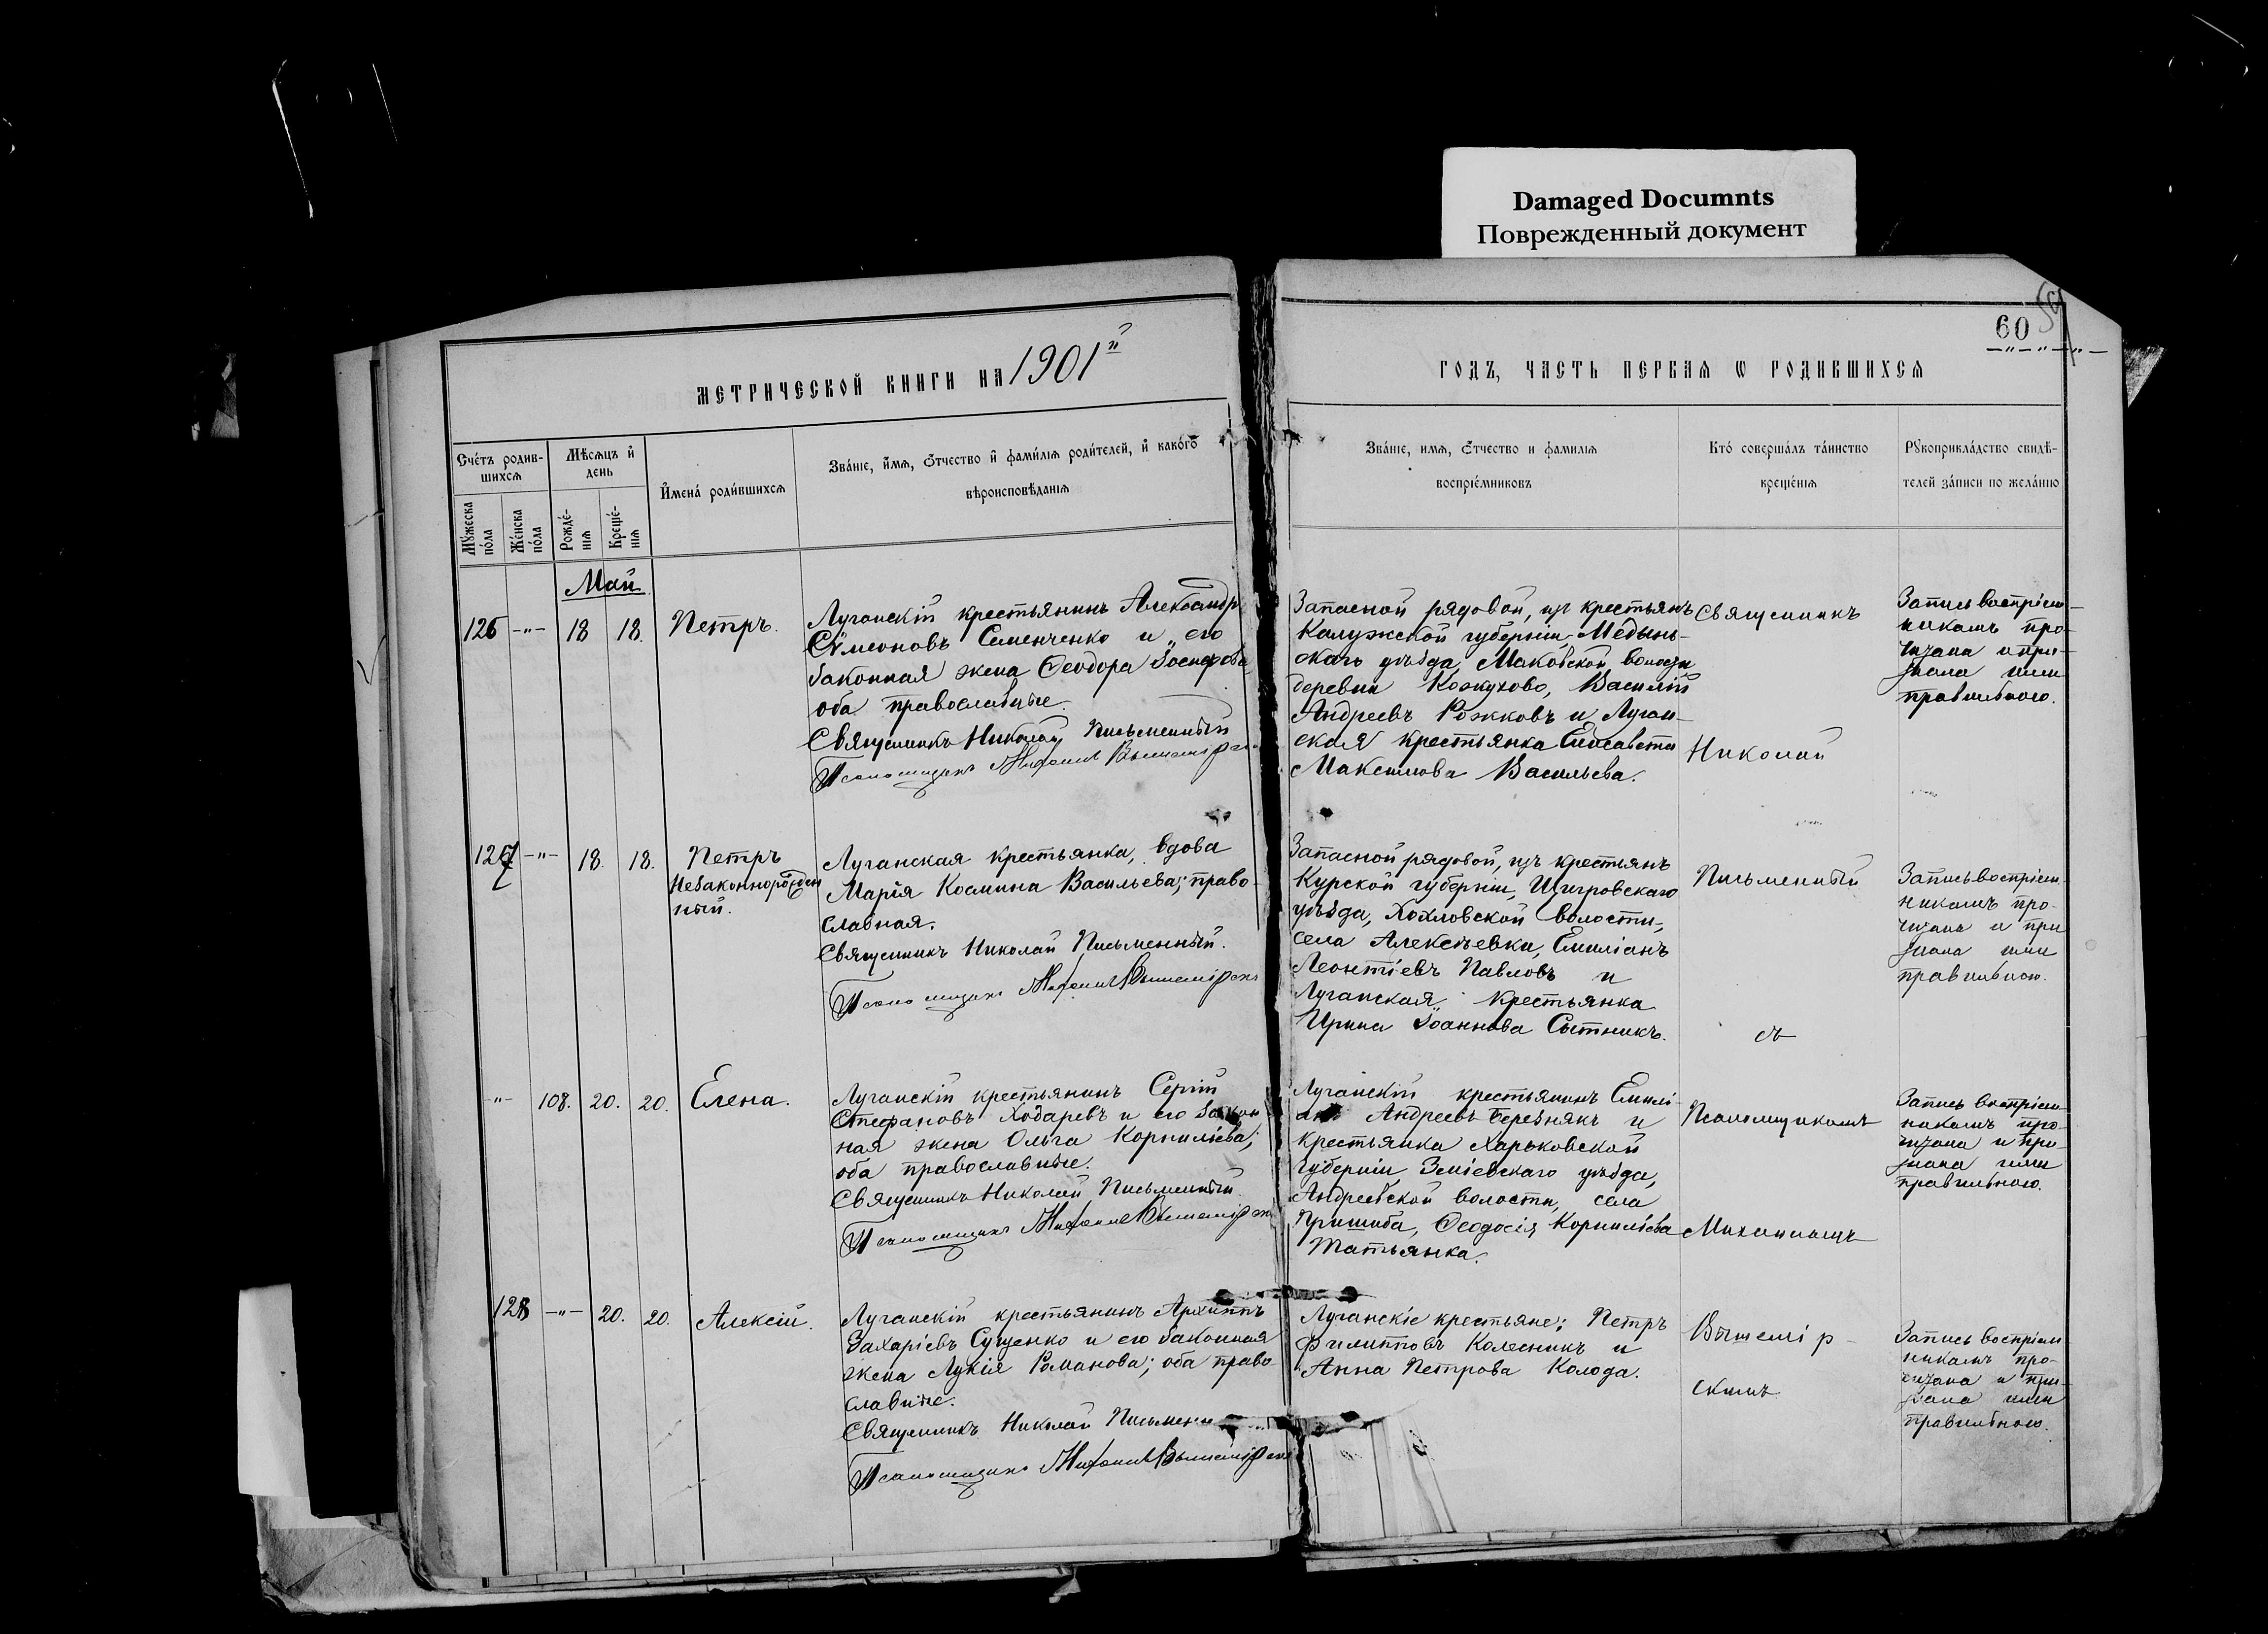 Damaged Documnts
Поврежденный документ
60
МЕТРИЧЕСКОЙ КНИГИ НА 1901й
ГОДЪ, ЧАСТЬ ПЕРВАЯ Ѡ РОДИВШИХСЯ
Счетъ родив-
шихся
Мужеска
пола
Женска
пола
Мѣсяцъ и
день
Рожде-
нія
Креще-
нія
Имена родившихся
Званіе, имя, отчество и фамилія родителей, и какого
вѣроисповѣданія
Званіе, имя, отчество и фамилія
воспріемниковъ
Кто совершалъ таинство
крещенія
Рукоприкладство свидѣ-
телей записи по желанію
Май
126 -"- 18 18. Петръ.
Луганскій крестьянинъ Александръ
Сѵмеоновъ Семенченко и его
законная жена Ѳеодора Іосифова,
оба православные.
Священникъ Николай Письменный
Псаломщикъ
Запасной рядовой, изъ крестьянъ
Калужской губерніи, Медынь-
скаго уѣзда, Маковской волости
деревни Кожухово, Василій
Андреевъ Рожковъ и Луган-
ская крестьянка Елисавета
Максимова Васильева.
Священникъ
Николай
Запись воспріем-
никамъ про-
читана и при-
знана ими
правильною.
127 -"- 18. 18. Петръ
Незаконнорожден
ный.
Луганская крестьянка, вдова
Марія Космина Васильева; право-
славная.
Священникъ Николай Письменный.
Псаломщикъ
Запасной рядовой, изъ крестьянъ
Курской губерніи, Щигровскаго
уѣзда, Хохловской волости,
села Алексѣевки, Емиліанъ
Леонтіевъ Павловъ и
Луганская крестьянка
Ирина Іоаннова Сытникъ.
Письменный
съ
Запись воспріем-
никамъ про-
читана и при
знана ими
правильною.
-"- 108. 20. 20. Елена.
Луганскій крестьянинъ Сергій
Стефановъ Ходаревъ и его закон
ная жена Ольга Корниліева;
оба православные.
Священникъ Николай Письменный
Псаломщикъ
Луганскій крестьянинъ Емилі-
Андреевъ Березнякъ и
крестьянка Харьковской
губерніи Зміевскаго уѣзда,
Андреевской волости, села
Пришиба, Ѳеодосія Корниліева
Татьянка.
Псаломщикомъ
Михаиломъ
Запись воспріем-
никамъ про-
читана и при
знана ими
правильною.
128 -"- 20. 20. Алексій.
Луганскій крестьянинъ Архиппъ
Захаріевъ Сущенко и его законная
жена Лукія Романова; оба право-
славные.
Священникъ Николай Письменн
Псаломщикъ
Луганскіе крестьяне: Петръ
Филипповъ Колесникъ и
Анна Петрова Колода.
Вышемір-
скимъ
Запись воспріем
никамъ про-
читана и при-
знана ими
правильною.